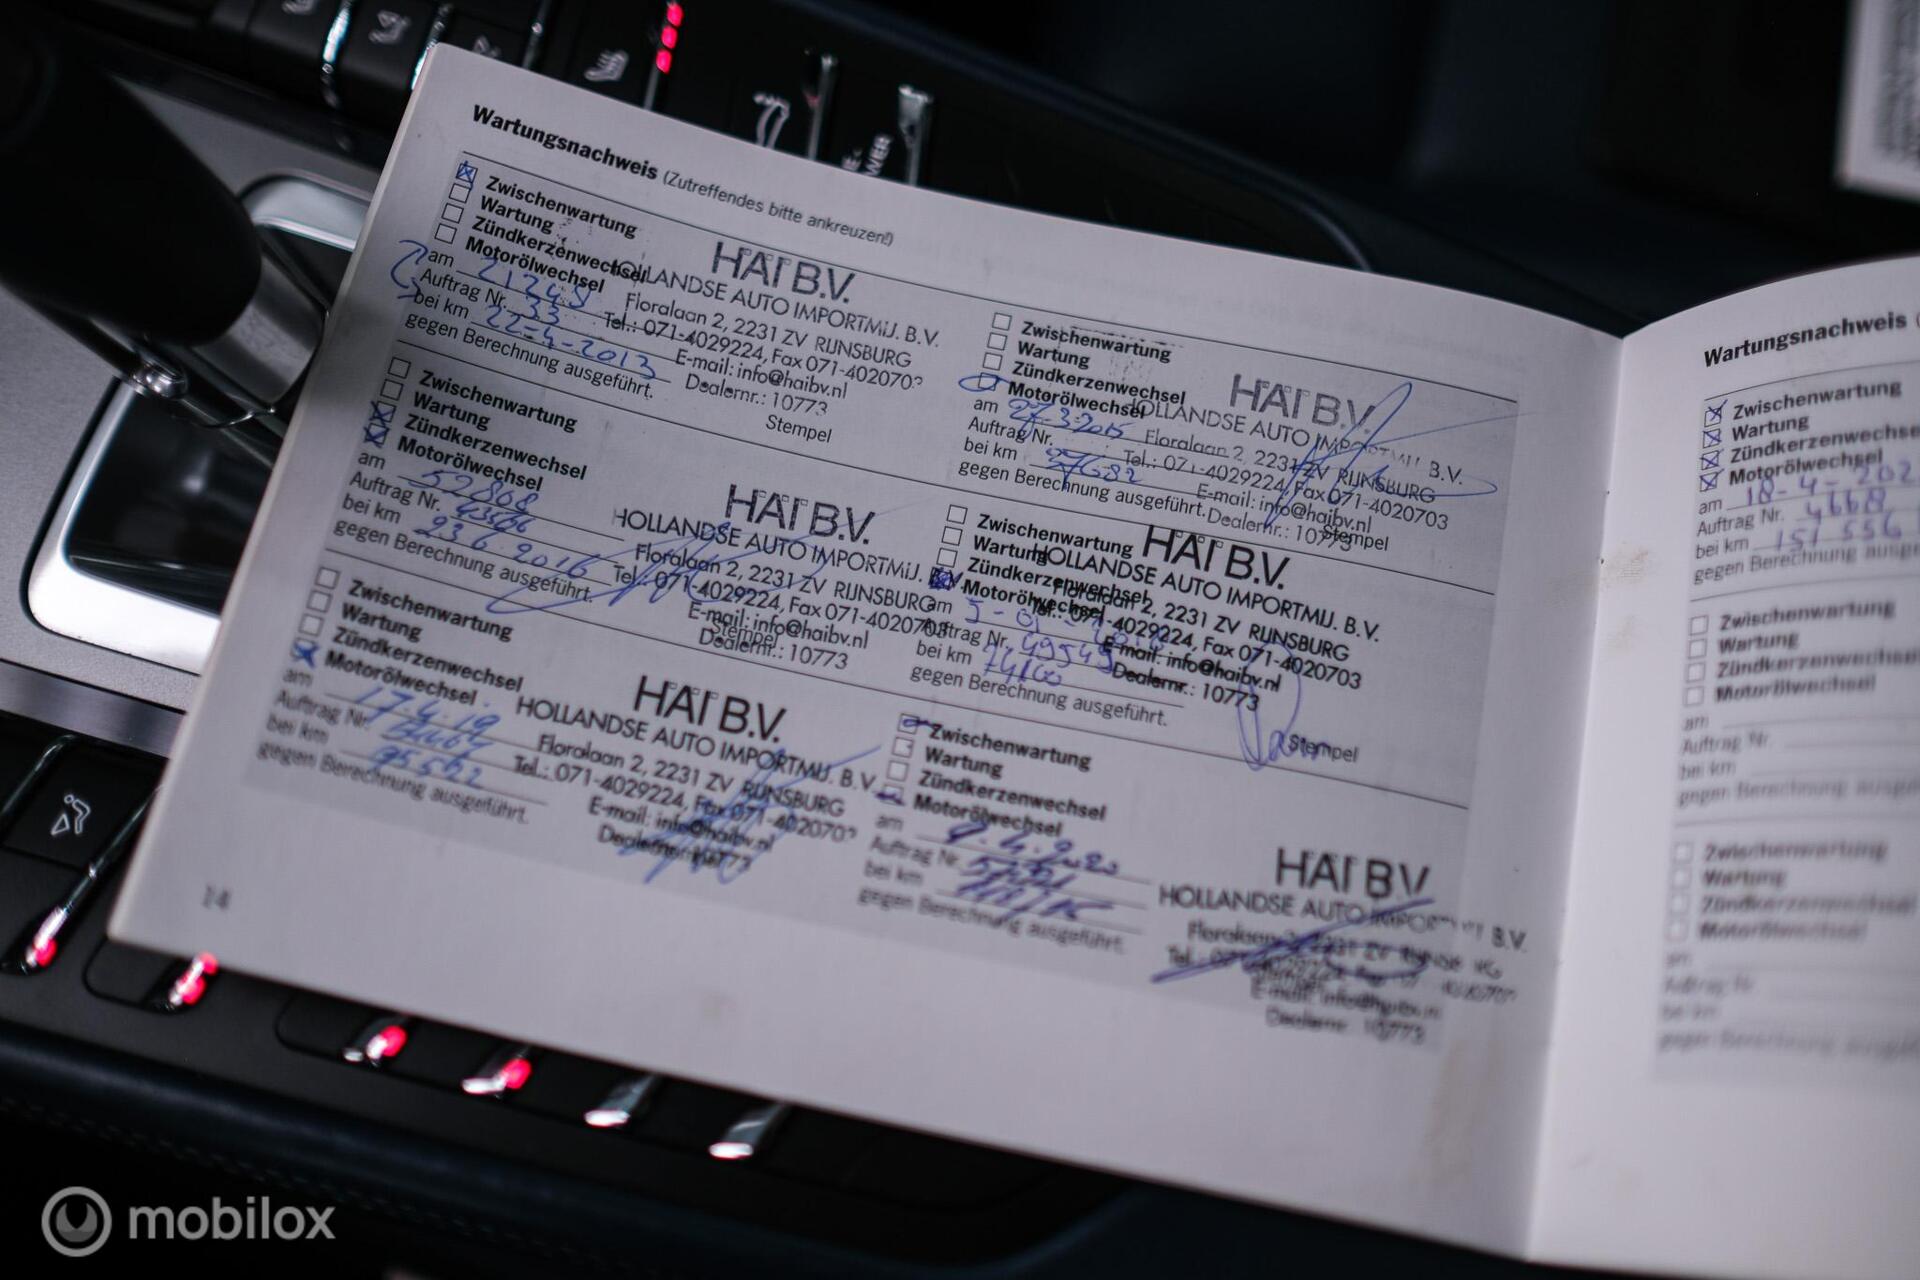 Wartungsnachweis (Zutreffendes bitte ankreuzen!)
Zwischenwartung
Wartung
Zündkerzenwechsel
Motorölwechsel
am 21249
Auftrag Nr. 33
bei km 22-4-2013
gegen Berechnung ausgeführt.
HAI B.V.
HOLLANDSE AUTO IMPORTMIJ. B.V.
Floralaan 2, 2231 ZV RIJNSBURG
Tel.: 071-4029224, Fax 071-402070
E-mail: info@haibv.nl
Dealernr.: 10773
Stempel
Zwischenwartung
Wartung
Zündkerzenwechsel
Motorölwechsel
am 52868
Auftrag Nr.
bei km 23 6 2016
gegen Berechnung ausgeführt.
HAI B.V.
HOLLANDSE AUTO IMPORTMIJ. B.V.
Floralaan 2, 2231 ZV RIJNSBURG
Tel.: 071-4029224, Fax 071-4020703
E-mail: info@haibv.nl
Stempel
Dealernr.: 10773
Zwischenwartung
Wartung
Zündkerzenwechsel
Motorölwechsel
am 17.4.19
Auftrag Nr.
bei km 95592
gegen Berechnung ausgeführt.
HAI B.V.
HOLLANDSE AUTO IMPORTMIJ. B.V.
Floralaan 2, 2231 ZV RIJNSBURG
Tel.: 071-4029224, Fax 071-402070
E-mail: info@haibv.nl
Dealernr.: 10773
14
Zwischenwartung
Wartung
Zündkerzenwechsel
Motorölwechsel
am 27.3.2015
Auftrag Nr.
bei km 37682
gegen Berechnung ausgeführt.
HAI B.V.
HOLLANDSE AUTO IMPORTMIJ. B.V.
Floralaan 2, 2231 ZV RIJNSBURG
Tel.: 071-4029224, Fax 071-4020703
E-mail: info@haibv.nl
Dealernr.: 10773
Stempel
Zwischenwartung
Wartung
Zündkerzenwechsel
Motorölwechsel
am
Auftrag Nr. 49549
bei km 74100
gegen Berechnung ausgeführt.
HAI B.V.
HOLLANDSE AUTO IMPORTMIJ. B.V.
Floralaan 2, 2231 ZV RIJNSBURG
Tel.: 071-4029224, Fax 071-4020703
E-mail: info@haibv.nl
Dealernr.: 10773
Stempel
Zwischenwartung
Wartung
Zündkerzenwechsel
Motorölwechsel
am
Auftrag Nr.
bei km
gegen Berechnung ausgeführt.
HAI B.V.
HOLLANDSE AUTO IMPORTMIJ. B.V.
Floralaan 2, 2231 ZV
E-mail: info@haibv.nl
Dealernr.: 10773
Wartungsnachweis
Zwischenwartung
Wartung
Zündkerzenwechse
Motorölwechsel
am 18-4-202
Auftrag Nr. 4668
bei km 151 556
gegen Berechnung ausge
Zwischenwartung
Wartung
Zündkerzenwechse
Motorölwechsel
am
Auftrag Nr.
bei km
gegen Berechnung ausge
Zwischenwartung
Wartung
Zündkerzenwechsel
Motorölwechsel
am
Auftrag Nr.
bei km
gegen Berechnung
mobilox